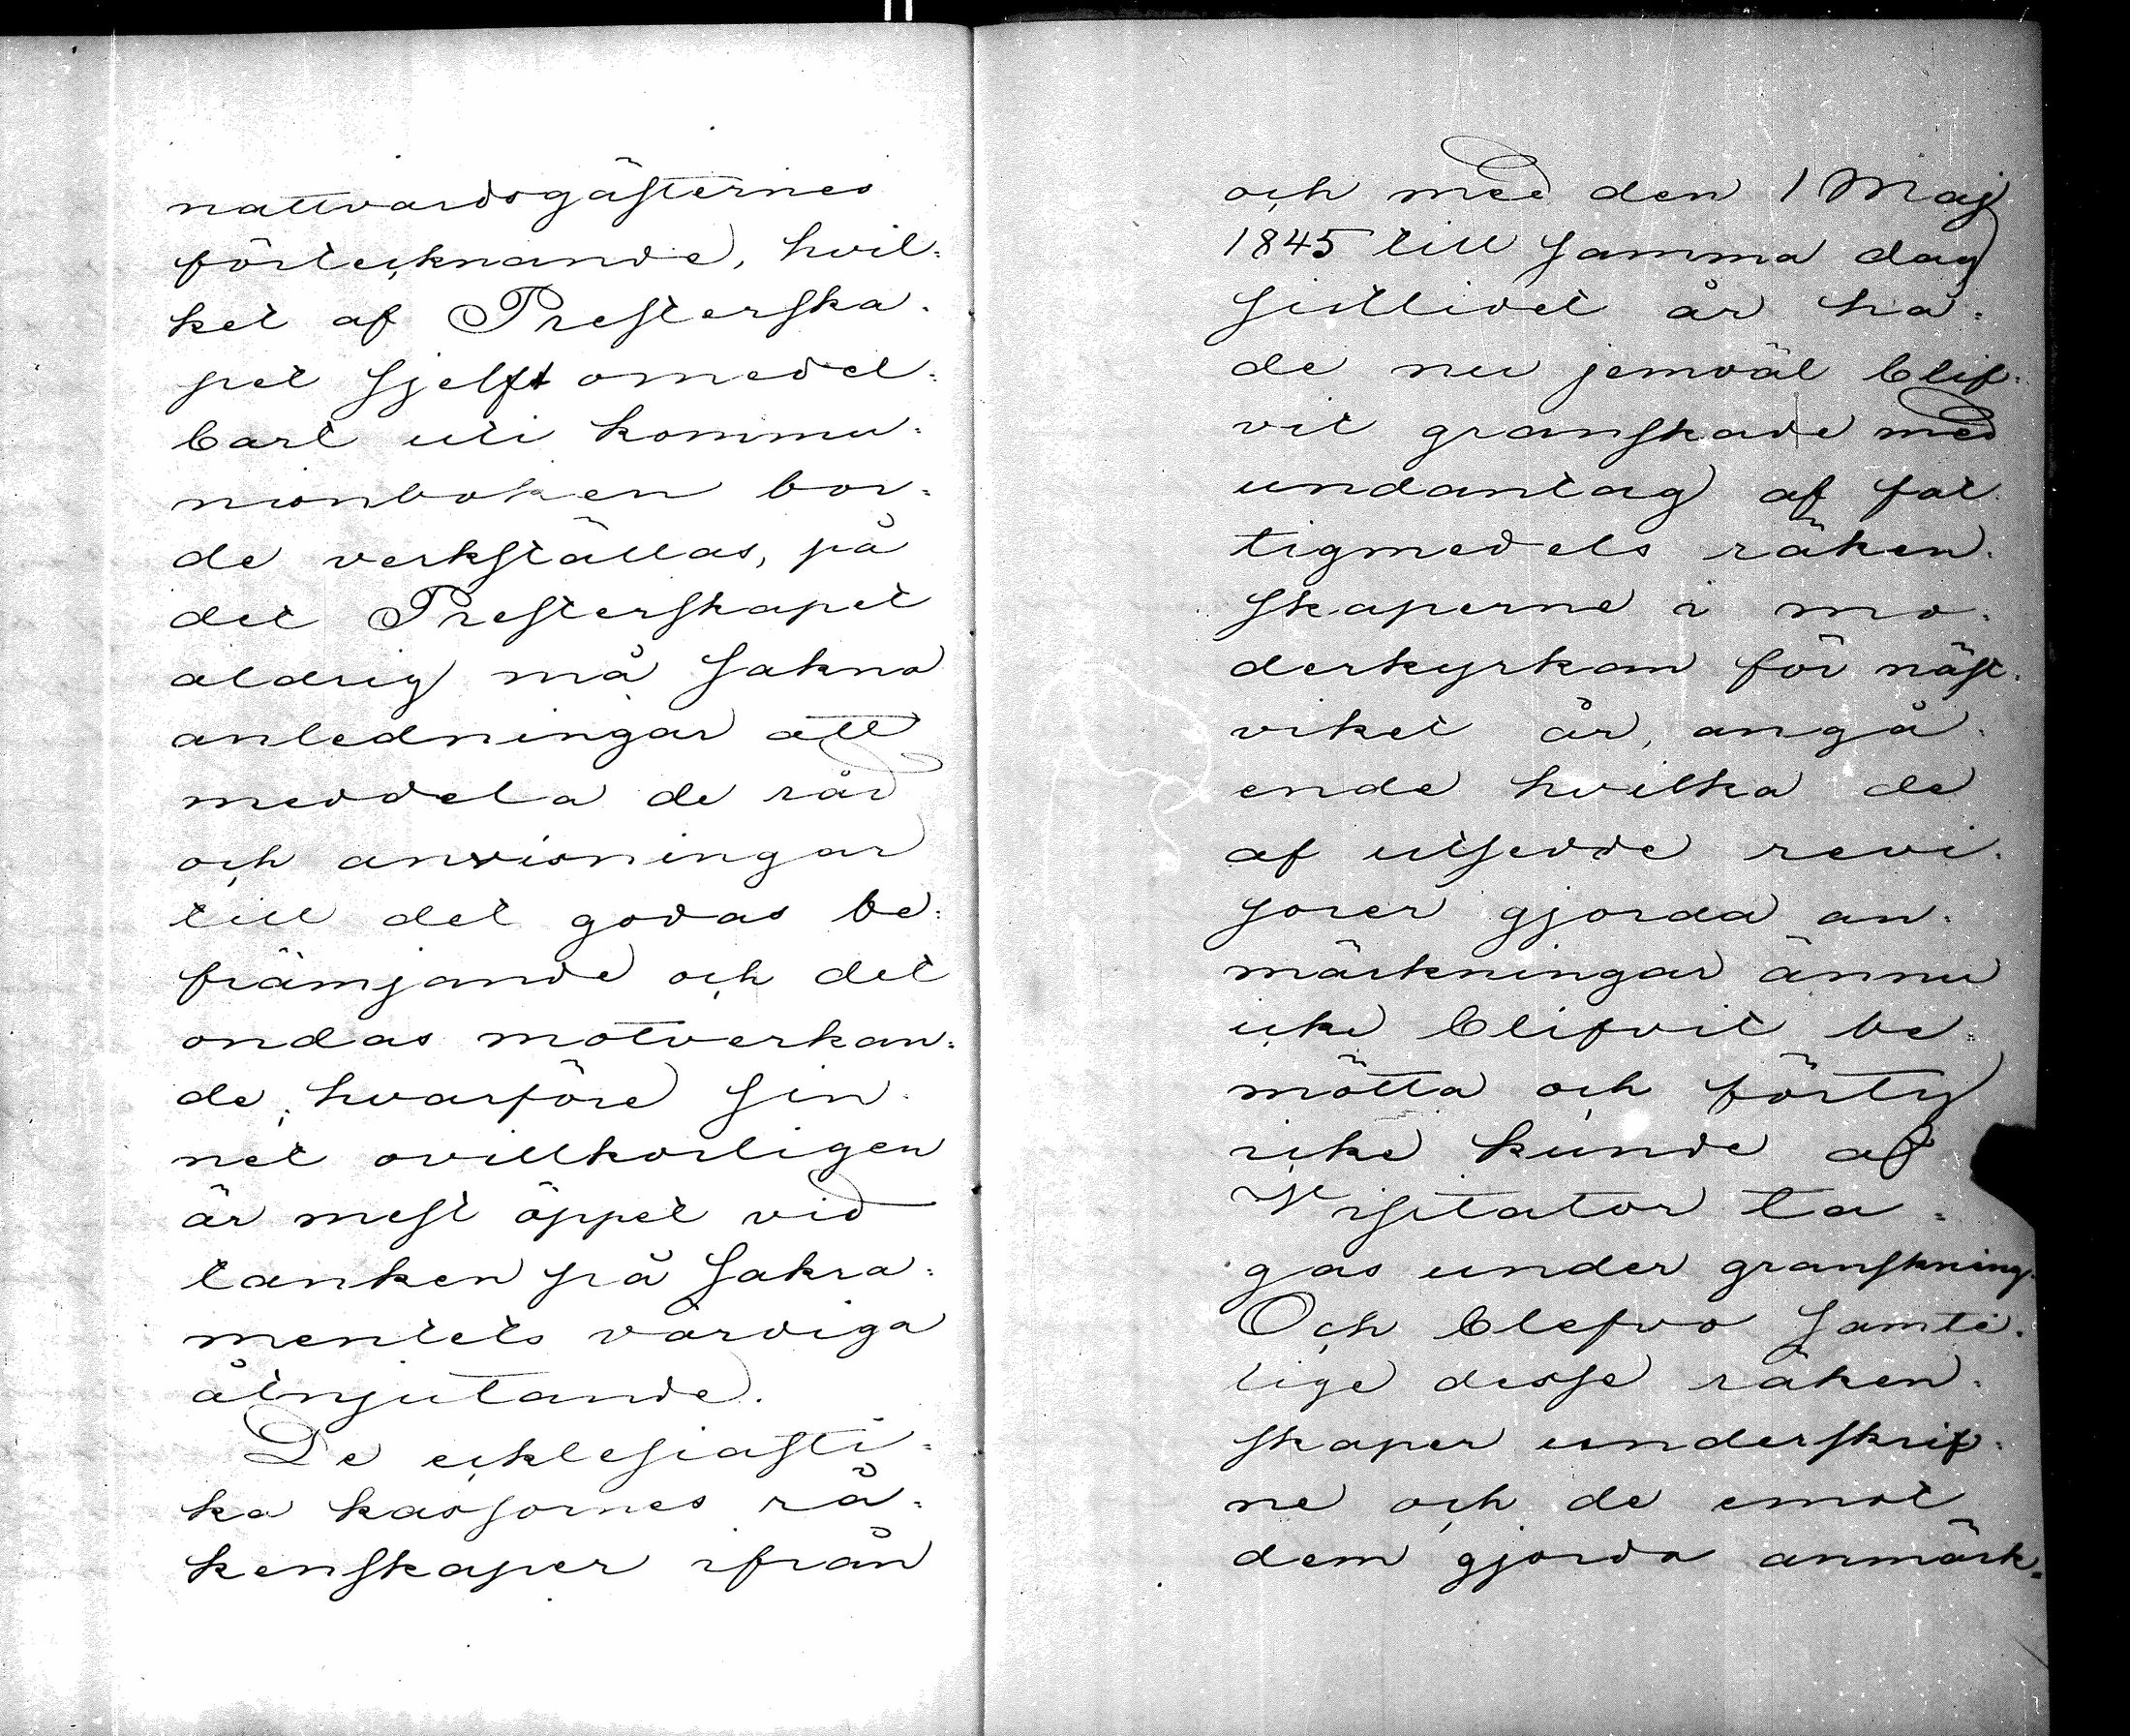 nattvardsgästernes
förtecknande, hvil=
ket af Presterska=
pet sjelft omedel=
bart uti kommu=
nionboken bor=
de verkställas, på
det Presterskapet
aldrig må sakna
anledningar att
meddela de råd
och anvisningar
till det godas be=
främjande och det
ondas motverkan=
de, hvarföre sin=
net ovillkorligen
är mest öppet vid
tanken på sakra=
mentets värdiga
åtnjutande.
De ecklesiasti=
ka kassornes rä=
kenskaper ifrån
och med den 1 Maj
1845 till samma dag
sistlidet år ha=
de nu jemväl blif=
vit granskade med
undantag af fat=
tigmedels räken=
skaperne i mo=
derkyrkan för näst=
viket år, angå=
ende hvilka de
af utsedde revi=
sorer gjorda an=
märkningar ännu
icke blifvit be=
mötta och förty
icke kunde af
Visitator ta=
gas under granskning.
Och blefvo samte=
lige desse räken=
skaper underskrif=
ne och de emot
dem gjorda anmärk=